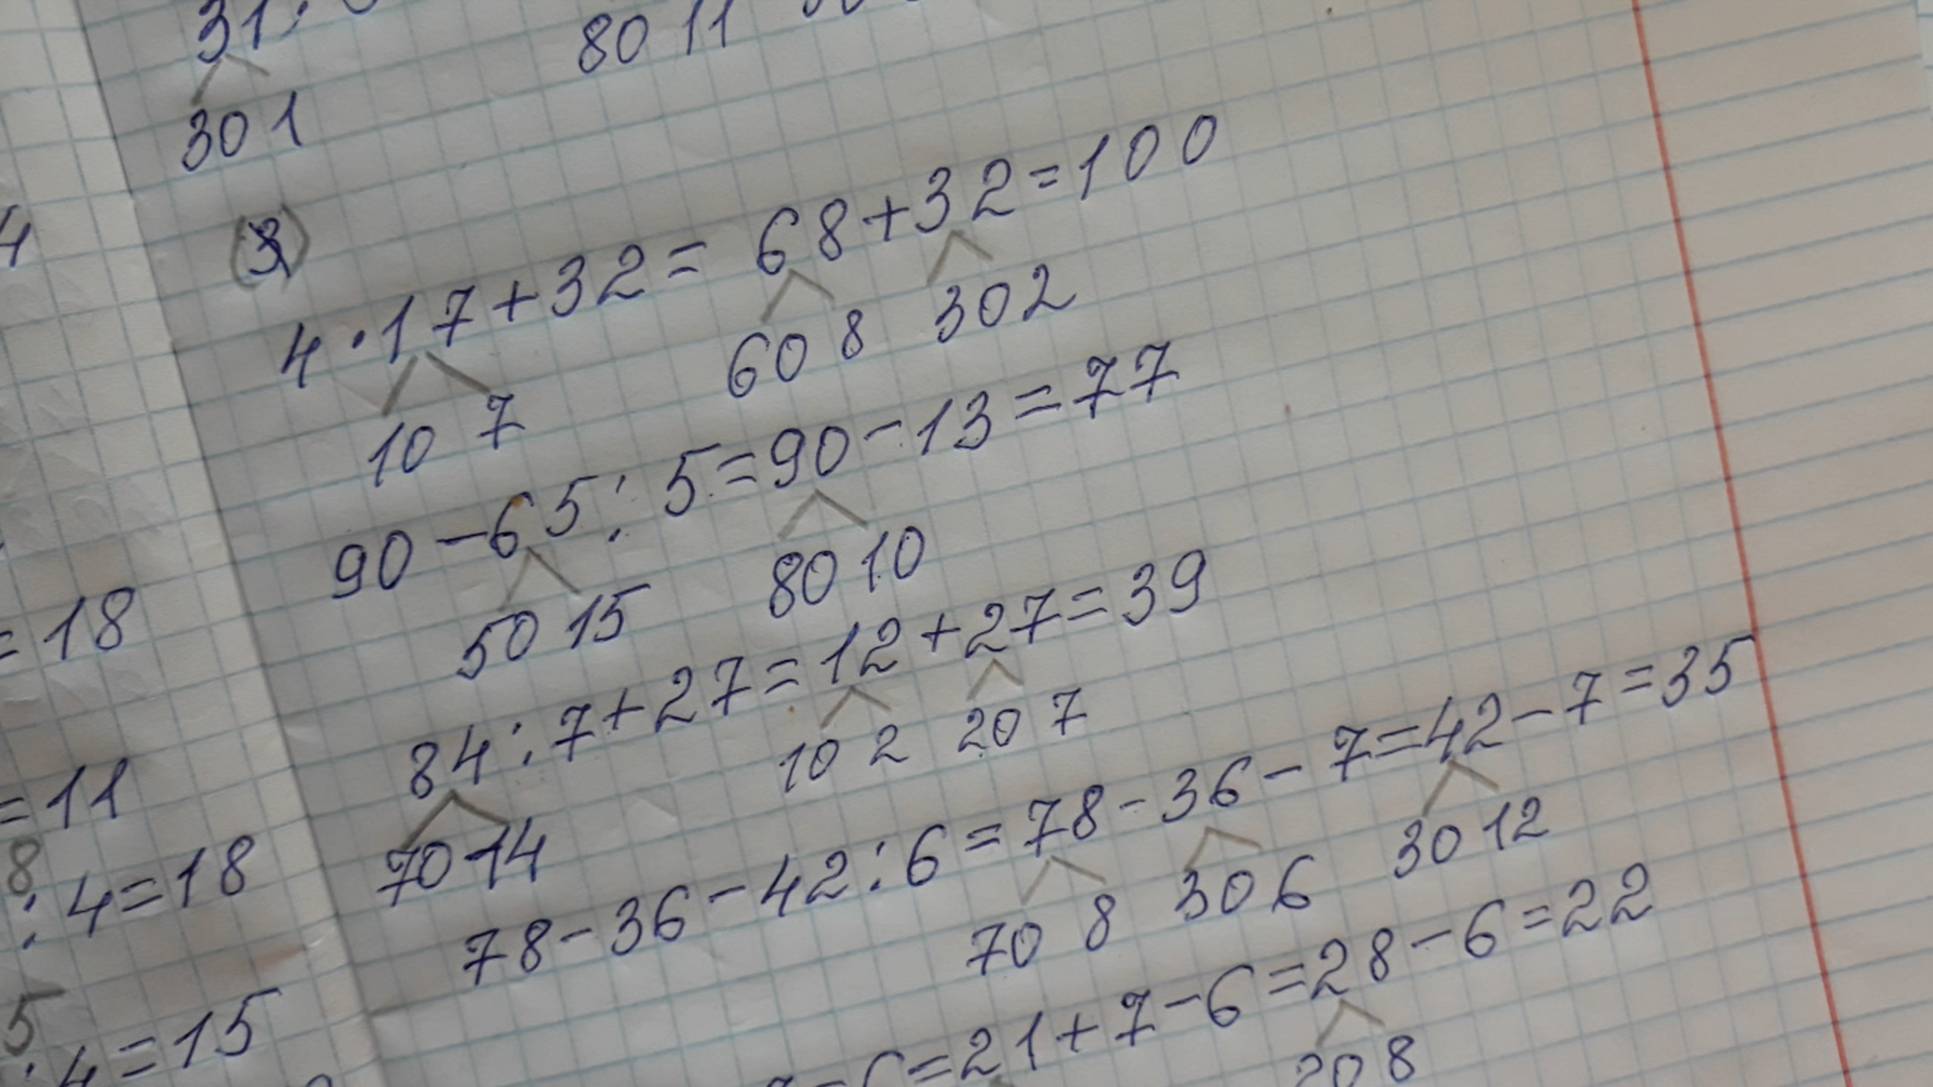 80 11
30 1
4 · 17 + 32 = 68 + 32 = 100
10 7 60 8 30 2
90 - 65 : 5 = 90 - 13 = 77
50 15 80 10
84 : 7 + 27 = 12 + 27 = 39
70 14 10 2 20 7
78 - 36 - 42 : 6 = 78 - 36 - 7 = 42 - 7 = 35
70 8 30 6 30 12
= 21 + 7 - 6 = 28 - 6 = 22
20 8
4
= 18
= 11
8
: 4 = 18
5
: 4 = 15